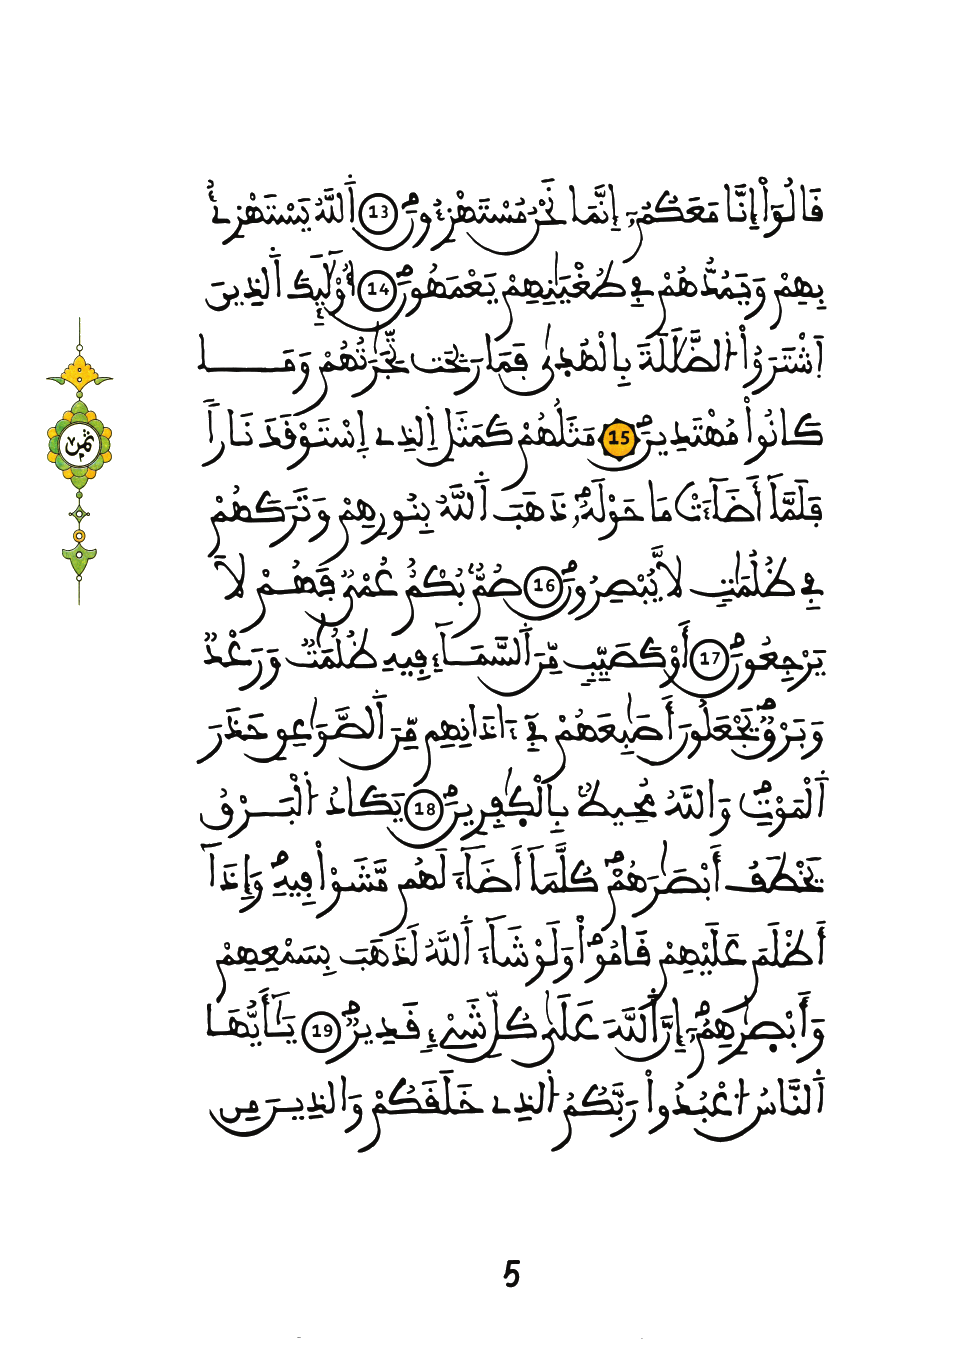 قَالُوٓاْ إِنَّا مَعَكُمُۥٓ إِنَّمَا نَحْنُ مُسْتَهْزِءُونَ 13 اَ۬للَّهُ يَسْتَهْزِۓُ
بِهِمْ وَيَمُدُّهُمْ فِے طُغْيَٰنِهِمْ يَعْمَهُونَ 14 أُوْلَٰٓئِكَ اَ۬لذِينَ
اَ۪شْتَرَوُاْ اُ۬لضَّلَٰلَةَ بِالْهُد۪يٰ فَمَا رَبِحَت تِّجَٰرَتُهُمْ وَمَا
كَانُواْ مُهْتَدِينَ 15 مَثَلُهُمْ كَمَثَلِ اِ۬لذِے اِ۪سْتَوْقَدَ نَاراٗ
فَلَمَّآ أَضَآءَتْ مَا حَوْلَهُۥ ذَهَبَ اَ۬للَّهُ بِنُورِهِمْ وَتَرَكَهُمْ
فِے ظُلُمَٰتٖ لَّا يُبْصِرُونَ 16 صُمُّۢ بُكْمٌ عُمْيٞ فَهُمْ لَا
يَرْجِعُونَ 17 أَوْ كَصَيِّبٖ مِّنَ اَ۬لسَّمَآءِ فِيهِ ظُلُمَٰتٞ وَرَعْدٞ
وَبَرْقٞ يَجْعَلُونَ أَصَٰبِعَهُمْ فِےٓ ءَاذَانِهِم مِّنَ اَ۬لصَّوَٰعِقِ حَذَرَ
اَ۬لْمَوْتِۖ وَاللَّهُ مُحِيطُۢ بِالْكٰ۪فِرِينَ 18 يَكَادُ اُ۬لْبَرْقُ
يَخْطَفُ أَبْصَٰرَهُمْۖ كُلَّمَآ أَضَآءَ لَهُم مَّشَوْاْ فِيهِۖ وَإِذَآ
أَظْلَمَ عَلَيْهِمْ قَامُواْۖ وَلَوْ شَآءَ اَ۬للَّهُ لَذَهَبَ بِسَمْعِهِمْ
وَأَبْصٰ۪رِهِمُۥٓۖ إِنَّ اَ۬للَّهَ عَلَىٰ كُلِّ شَےْءٖ قَدِيرٞۖ 19 يَٰٓأَيُّهَا
اَ۬لنَّاسُ اُ۟عْبُدُواْ رَبَّكُمُ اُ۬لذِے خَلَقَكُمْ وَالذِينَ مِن
ثمن
5